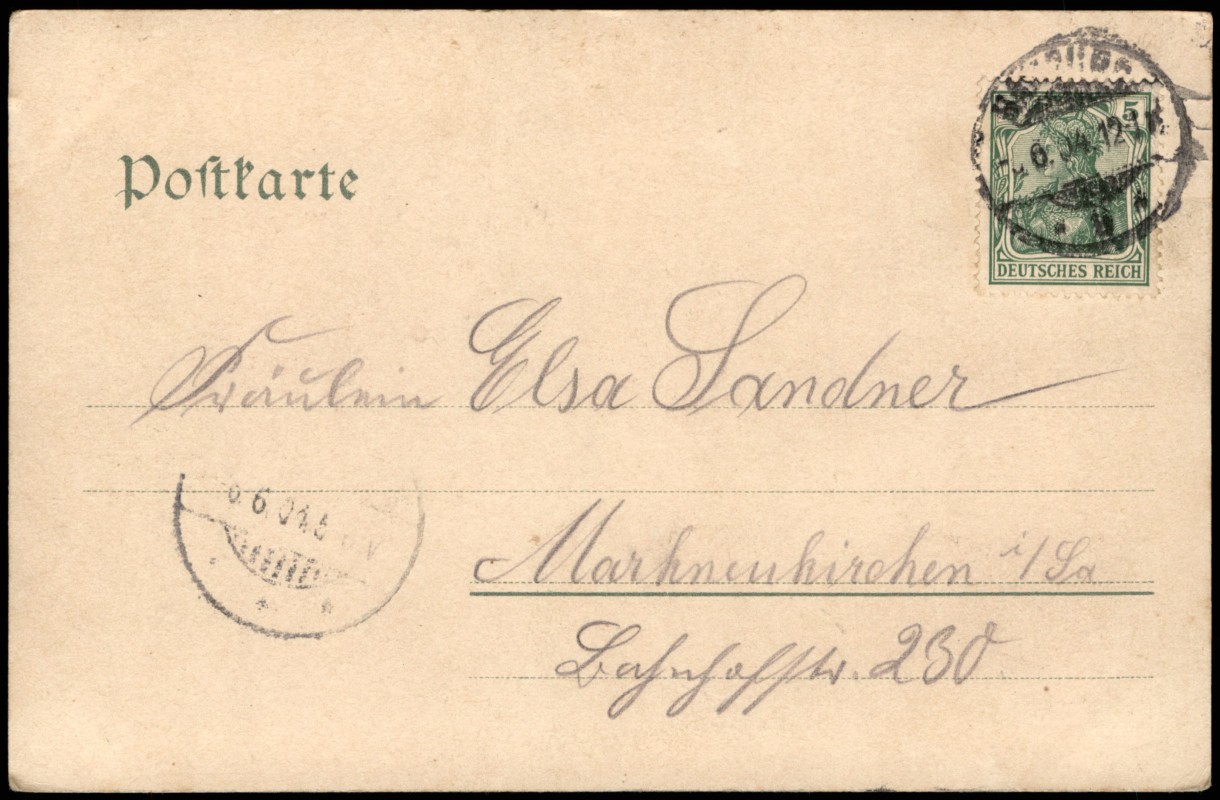 Postkarte
5
6.04.12-1N.
DEUTSCHES REICH
Fräulein Elsa Sandner
6.6.04.
Markneukirchen i/Sa
Bahnhofstr. 230